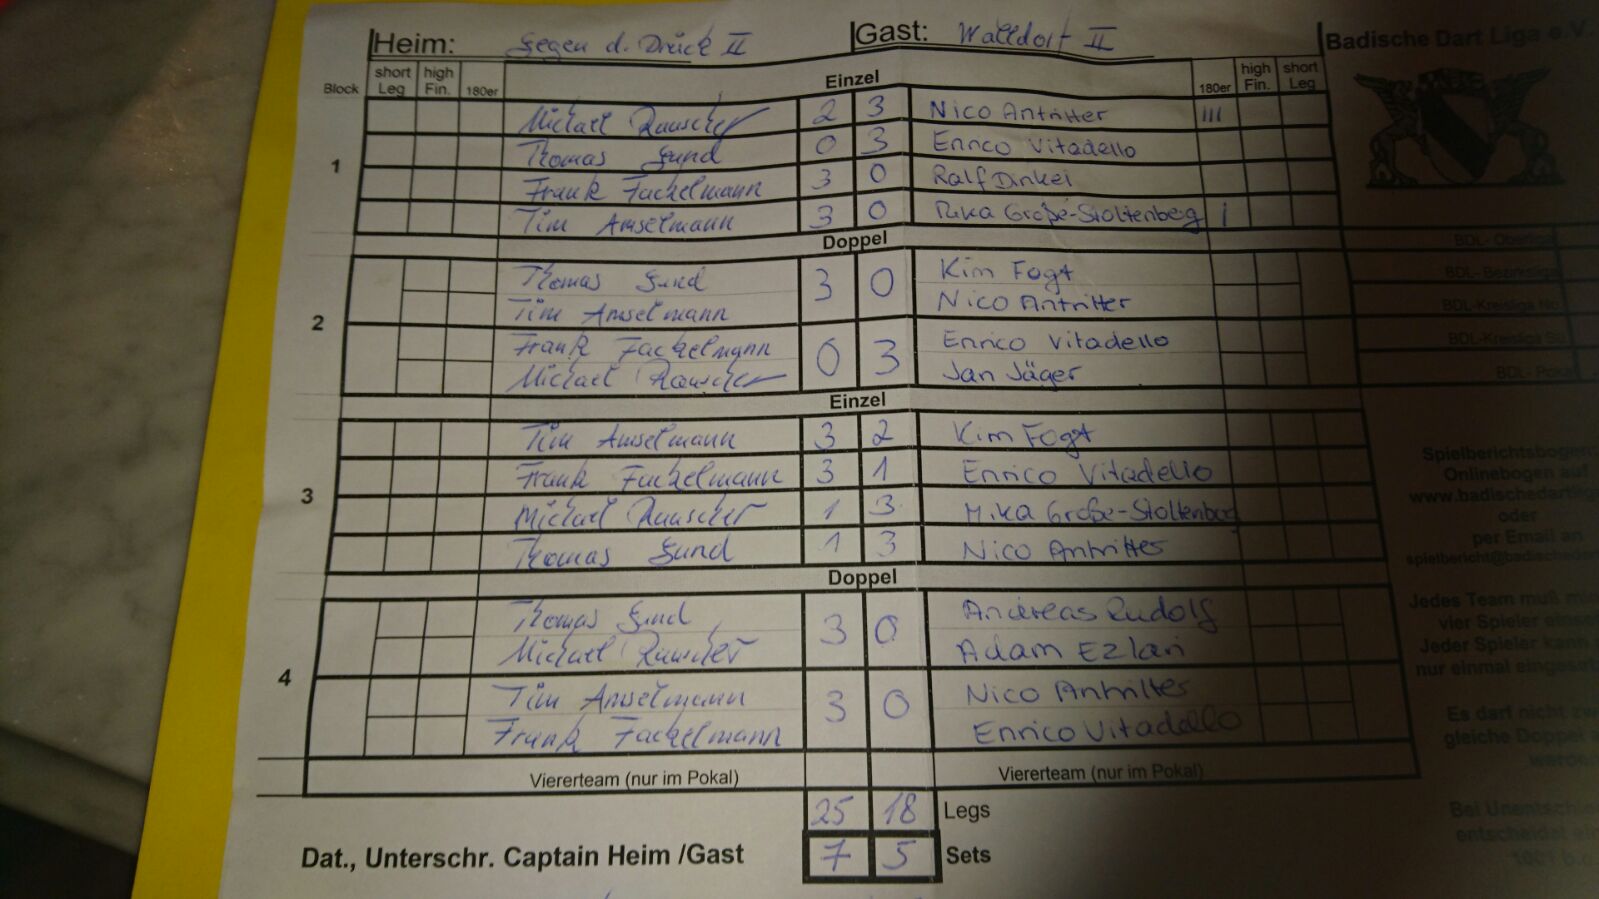 Heim: Gegen d. Drück II Gast: Walldorf II Badische Dart Liga e.V.
Block short Leg high Fin. 180er Einzel 180er high Fin. short Leg
1
Michael Rauscher 2 3 Nico Antritter III
Thomas Gund 0 3 Enrico Vitadello
Frank Fackelmann 3 0 Ralf Dinkel
Tim Amselmann 3 0 Mika Große-Stoltenberg I
Doppel
BDL-
2
Thomas Gund 3 0 Kim Fogt
Tim Amselmann Nico Antritter
BDL-Bezirksliga
BDL-Kreisliga
Frank Fackelmann 0 3 Enrico Vitadello
Michael Rauscher Jan Jäger
BDL-Kreisliga
BDL-Pokal
Einzel
3
Tim Amselmann 3 2 Kim Fogt
Frank Fackelmann 3 1 Enrico Vitadello
Michael Rauscher 1 3 Mika Große-Stoltenberg
Thomas Gund 1 3 Nico Antritter
Spielberichtsbogen
Onlinebogen auf
www.badischedartliga
oder
per Email an
spielbericht@badischeda
Doppel
4
Thomas Gund 3 0 Andreas Rudolf
Michael Rauscher Adam Ezlan
Tim Amselmann 3 0 Nico Antritter
Frank Fackelmann Enrico Vitadello
Jedes Team muß
vier Spieler
Jeder Spieler kann
nur einmal
Es darf nicht
gleiche Doppel
Viererteam (nur im Pokal) Viererteam (nur im Pokal)
25 18 Legs
Dat., Unterschr. Captain Heim /Gast 7 5 Sets
Bei
entscheidet
1001